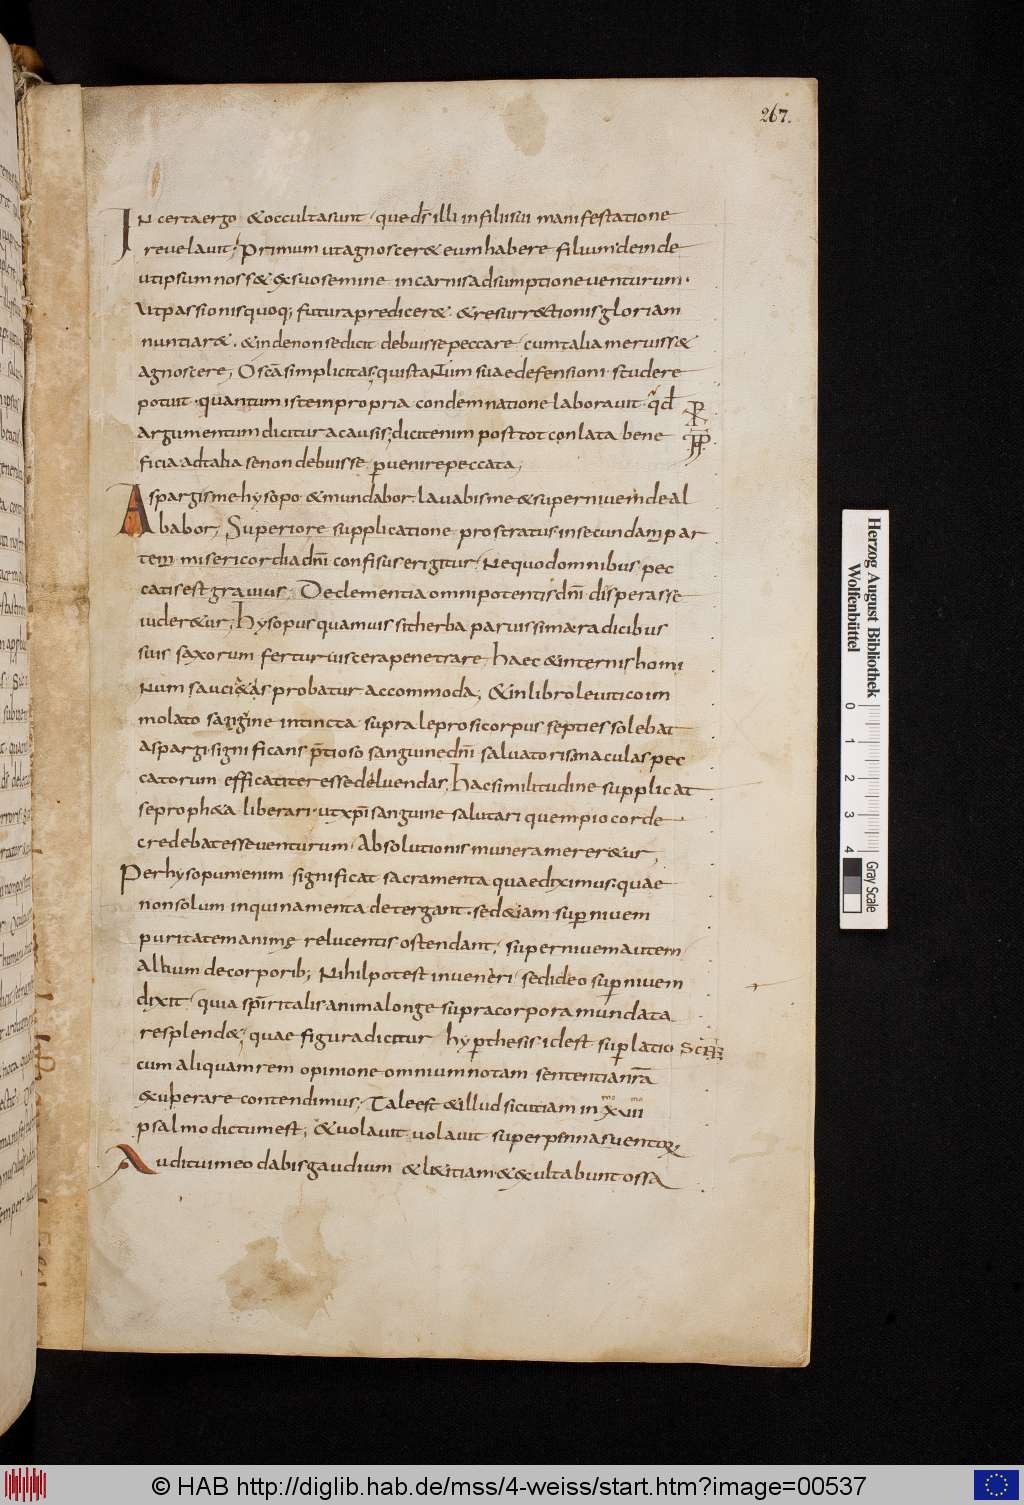 267.
IN certa ergo & occulta sunt que ds illi in filii sui manifestatione
revelavit; Primum ut agnoscer& eum habere filium; deinde
ut ipsum noss& ex suo semine in carnis adsumptione venturum.
Ut passionis quoq; futura predicer& & resurr&tionis gloriam
nuntiar&. & inde non se dicit debuisse peccare cum talia meruiss&
agnoscere; O sca simplicitas quis tantum suae defensioni studere
potuit quantum iste in propria condemnatione laboravit. qd
argumentum dicitur a causis; dicit enim post tot conlata bene
ficia ad talia se non debuisse pvenire peccata;
Aspargis me hysopo & mundabor lavabis me & super nivem deal
babor; Superiore supplicatione prostratus in secundam par
tem misericordia dni confisus erigitur; Nequod omnibus pec
catis est gravius; De clementia omnipotentis dni disperasse
iuder&ur; hysopus quamvis sit herba parvissima radicibus
suis saxorum fertur viscera penetrare haec & internis homi
num sauci&as probatur accommoda; & in libro levitico im
molato sangine intincta supra leprosi corpus septies solebat
aspargi significans ptioso sanguine dni salvatoris maculas pec
catorum efficatiter esse deluendas; hac similitudine supplicat
se proph&a liberari ut xpi sanguine salutari quem pio corde
credebat esse venturum Absolutionis munera merer&ur;
Per hysopum enim significat sacramenta quae diximus quae
non solum inquinamenta detergant sed &iam sup nivem
puritatem anime relucentis ostendant; super nivem autem
album de corporib; Nihil potest inveneri sed ideo sup nivem
dixit quia spiritalis anima longe supra corpora mundata
resplend&; quae figura dicitur hypthesis id est suplatio
cum aliquam rem opinione omnium notam sententia nra
exuperare contendimus; Tale est & illud sicut iam in xviimo
psalmo dictum est; & volavit volavit super pennas ventorum
Auditui meo dabis gaudium & l&itiam & exultabunt ossa
Herzog August Bibliothek
Wolfenbüttel
0 1 2 3 4
Gray Scale
© HAB http://diglib.hab.de/mss/4-weiss/start.htm?image=00537